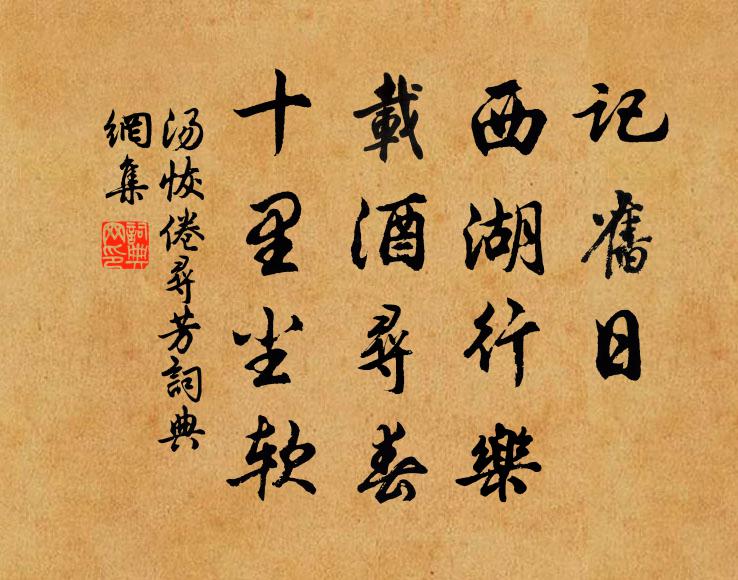 記舊日
西湖行樂
載酒尋春
十里尘軟
汤恢倦尋芳詞典
網集
詞典
网印